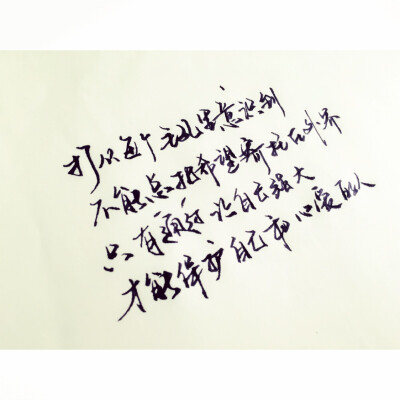 打从 意识到
不能总把希望寄托在外界
只有通过让自己强大
才能保护自己和心爱的人